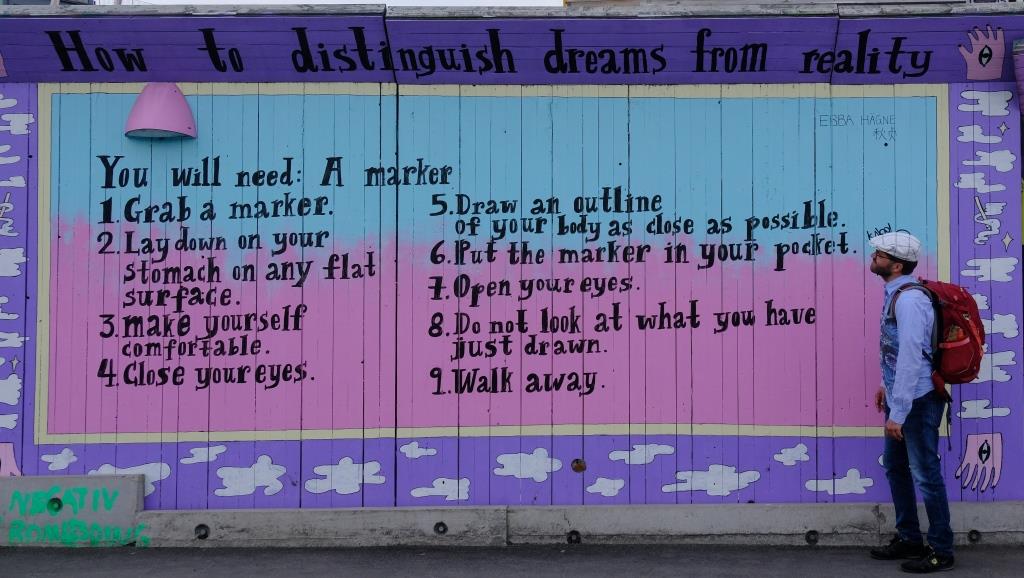 How to distinguish dreams from reality
EBBA HÄGNE
You will need: A marker
1. Grab a marker.
2. Lay down on your
stomach on any flat
surface.
3. make yourself
comfortable.
4. Close your eyes.
5. Draw an outline
of your body as close as possible.
6. Put the marker in your pocket.
7. Open your eyes.
8. Do not look at what you have
just drawn.
9. Walk away.
NEGATIV